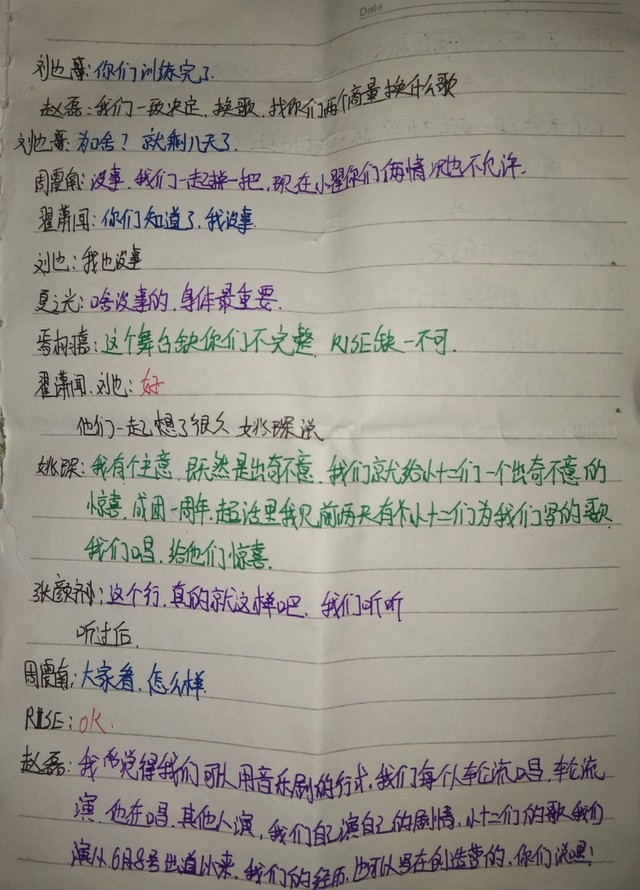 Date
刘也:你们训练完了.
赵磊:我们一致决定,换歌,找你们两个商量换什么歌
刘也:为啥?就剩几天了.
周震南:没事,我们一起拼一把,现在小翟你们俩情况也不允许.
翟潇闻:你们知道了,我没事.
刘也:我也没事
夏之光:啥没事的,身体最重要.
焉栩嘉:这个舞台缺你们不完整,R1SE缺一不可.
翟潇闻,刘也:好
他们一起想了很久 姚琛说
姚琛:我有个主意,既然是出奇不意,我们就给小十二们一个出奇不意的
惊喜,成团一周年,超话里我见前两天有个小十二们为我们写的歌
我们唱,给他们惊喜.
张颜齐:这个行,真的就这样吧,我们听听
听过后,
周震南:大家看,怎么样.
R1SE:OK.
赵磊:我觉得我们可以用音乐剧的行式,我们每个人轮流唱,轮流
演,他在唱,其他人演,我们自己演自己的剧情,小十二们的歌我们
演从6月8号出道以来,我们的经历,也可以写在创造营的,你们说呢!